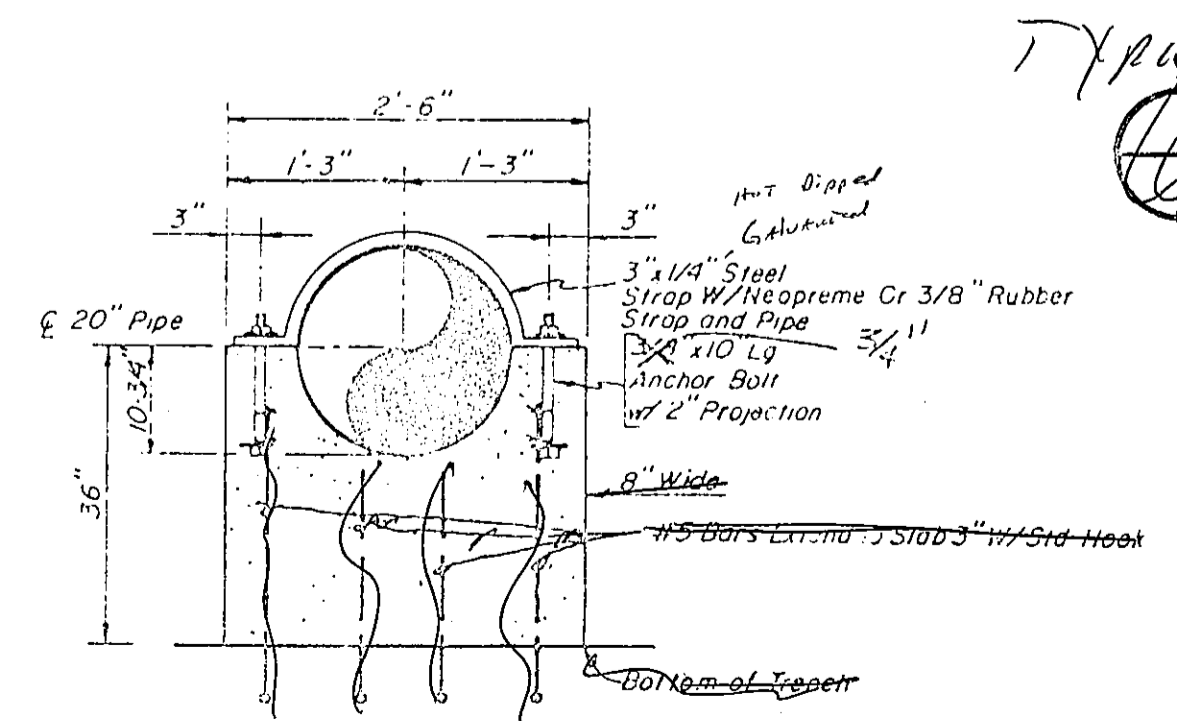 2'-6"
1'-3" 1'-3"
Hot Dipped
Galvanized
3" 3"
3"x1/4" Steel
Strap W/Neopreme Cr 3/8" Rubber
Strap and Pipe
℄ 20" Pipe
3/4"
3/4 x10" Lg
Anchor Bolt
w/ 2" Projection
10.34"
36"
8" Wide
#5 Bars Extend Slab 3" W/Std Hook
Bottom of Trench